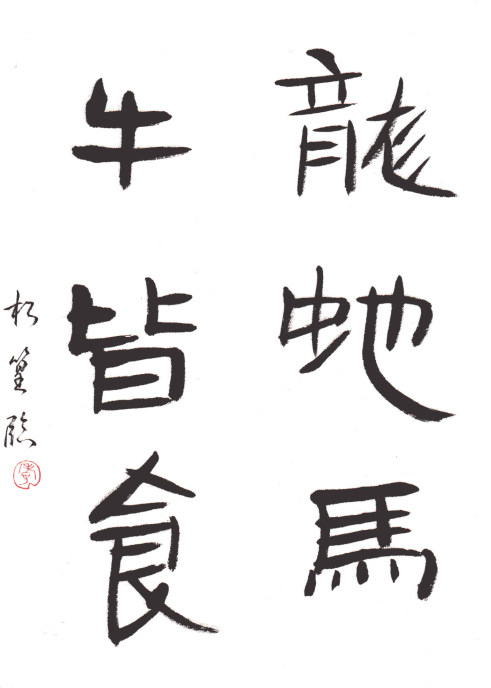 龍虵馬
牛皆食
松篁臨